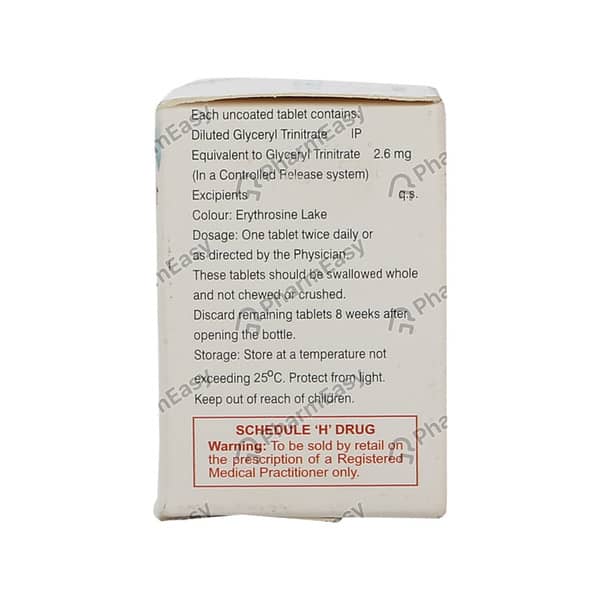 Each uncoated tablet contains:
Diluted Glyceryl Trinitrate IP
Equivalent to Glyceryl Trinitrate 2.6 mg
(In a Controlled Release system)
Excipients q.s.
Colour: Erythrosine Lake
Dosage: One tablet twice daily or
as directed by the Physician.
These tablets should be swallowed whole
and not chewed or crushed.
Discard remaining tablets 8 weeks after
opening the bottle.
Storage: Store at a temperature not
exceeding 25°C. Protect from light.
Keep out of reach of children.
SCHEDULE 'H' DRUG
Warning: To be sold by retail on
the prescription of a Registered
Medical Practitioner only.
PharmEasy
PharmEasy
PharmEasy
PharmEasy
PharmEasy
PharmEasy
PharmEasy
PharmEasy
PharmEasy